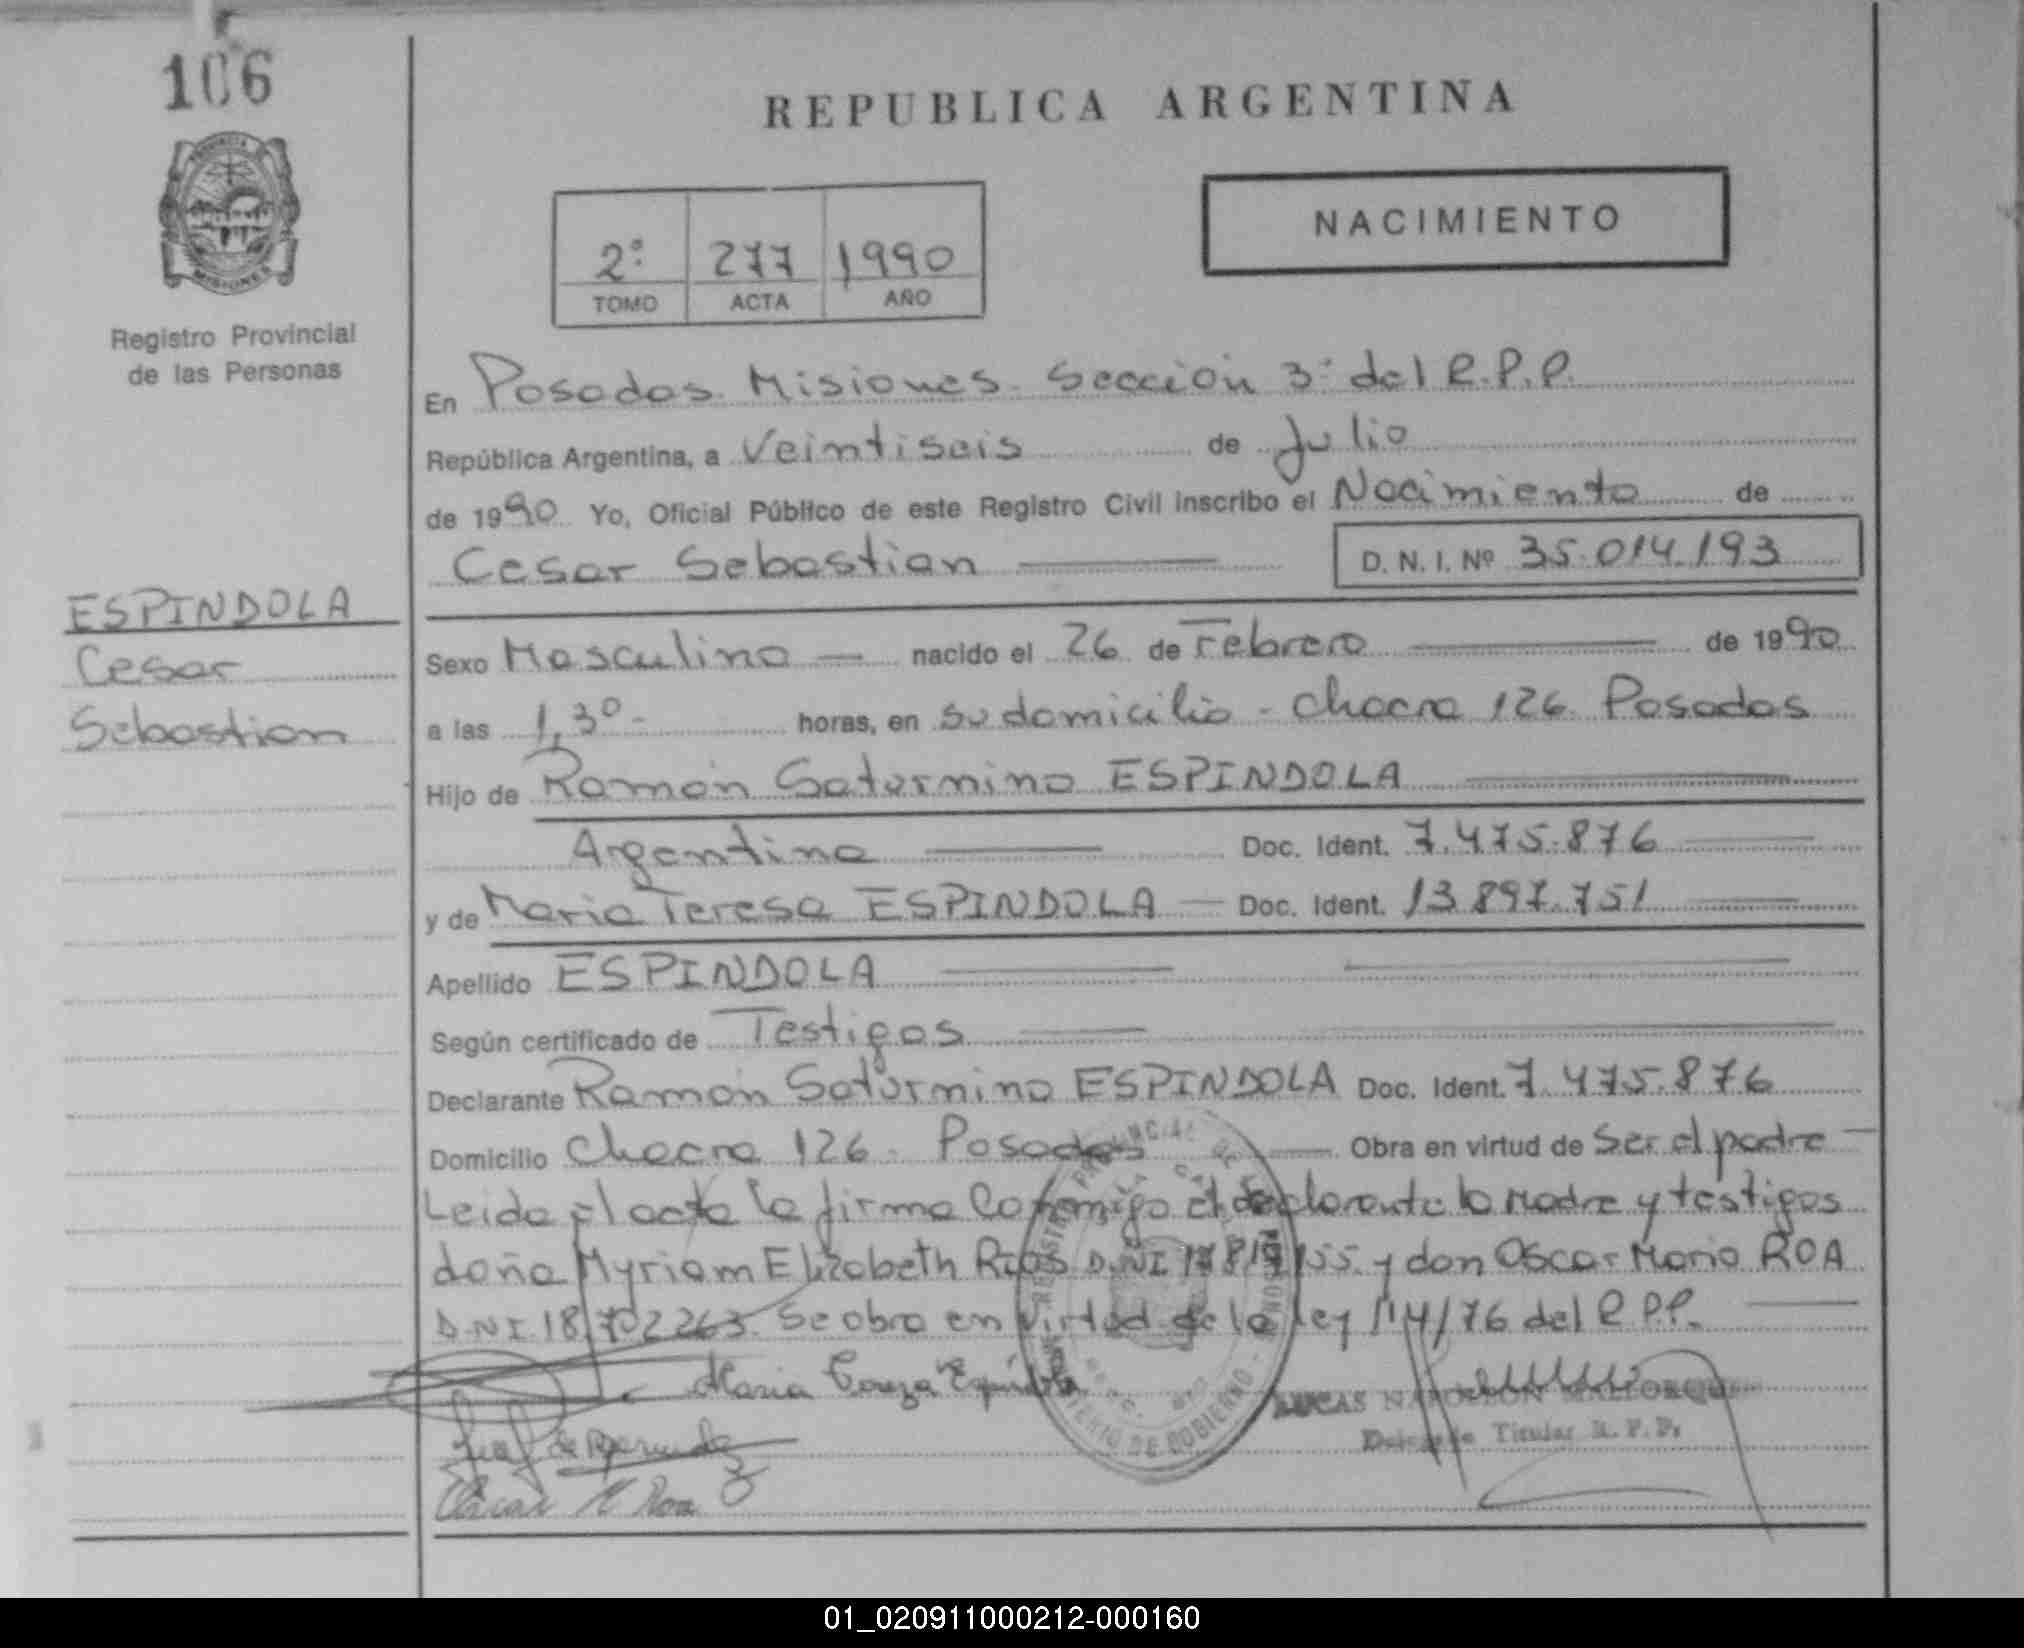 106
REPUBLICA ARGENTINA
PROVINCIA
MISIONES
Registro Provincial
de las Personas
2º 277 1990
TOMO ACTA AÑO
NACIMIENTO
En Posadas Misiones. Sección 3º del R.P.P.
República Argentina, a Veintiseis de Julio
de 1990 Yo, Oficial Público de este Registro Civil inscribo el Nacimiento de
Cesar Sebastian D. N. I. Nº 35.014.193
ESPINDOLA
Cesar
Sebastian
Sexo Masculino nacido el 26 de Febrero de 1990
a las 1,30- horas, en su domicilio - Chacra 126. Posadas
Hijo de Ramón Saturnino ESPINDOLA
Argentino Doc. Ident. 7.475.876
y de Maria Teresa ESPINDOLA Doc. Ident. 13.897.751
Apellido ESPINDOLA
Según certificado de Testigos
Declarante Ramón Saturnino ESPINDOLA Doc. Ident. 7.475.876
Domicilio Chacra 126. Posadas Obra en virtud de Ser el padre
Leida el acta la firma Conmigo el declarante la Madre y testigos
doña Myriam Elizabeth Rios D.NI y don Oscar Mario ROA
D.N.I. 18.702263. Se obra en virtud de la ley 114/76 del R.P.P.
Maria
Oscar M Roa
LUCAS NAPOLEON
Delegado Titular R. P. P.
MINISTERIO DE GOBIERNO
01_020911000212-000160